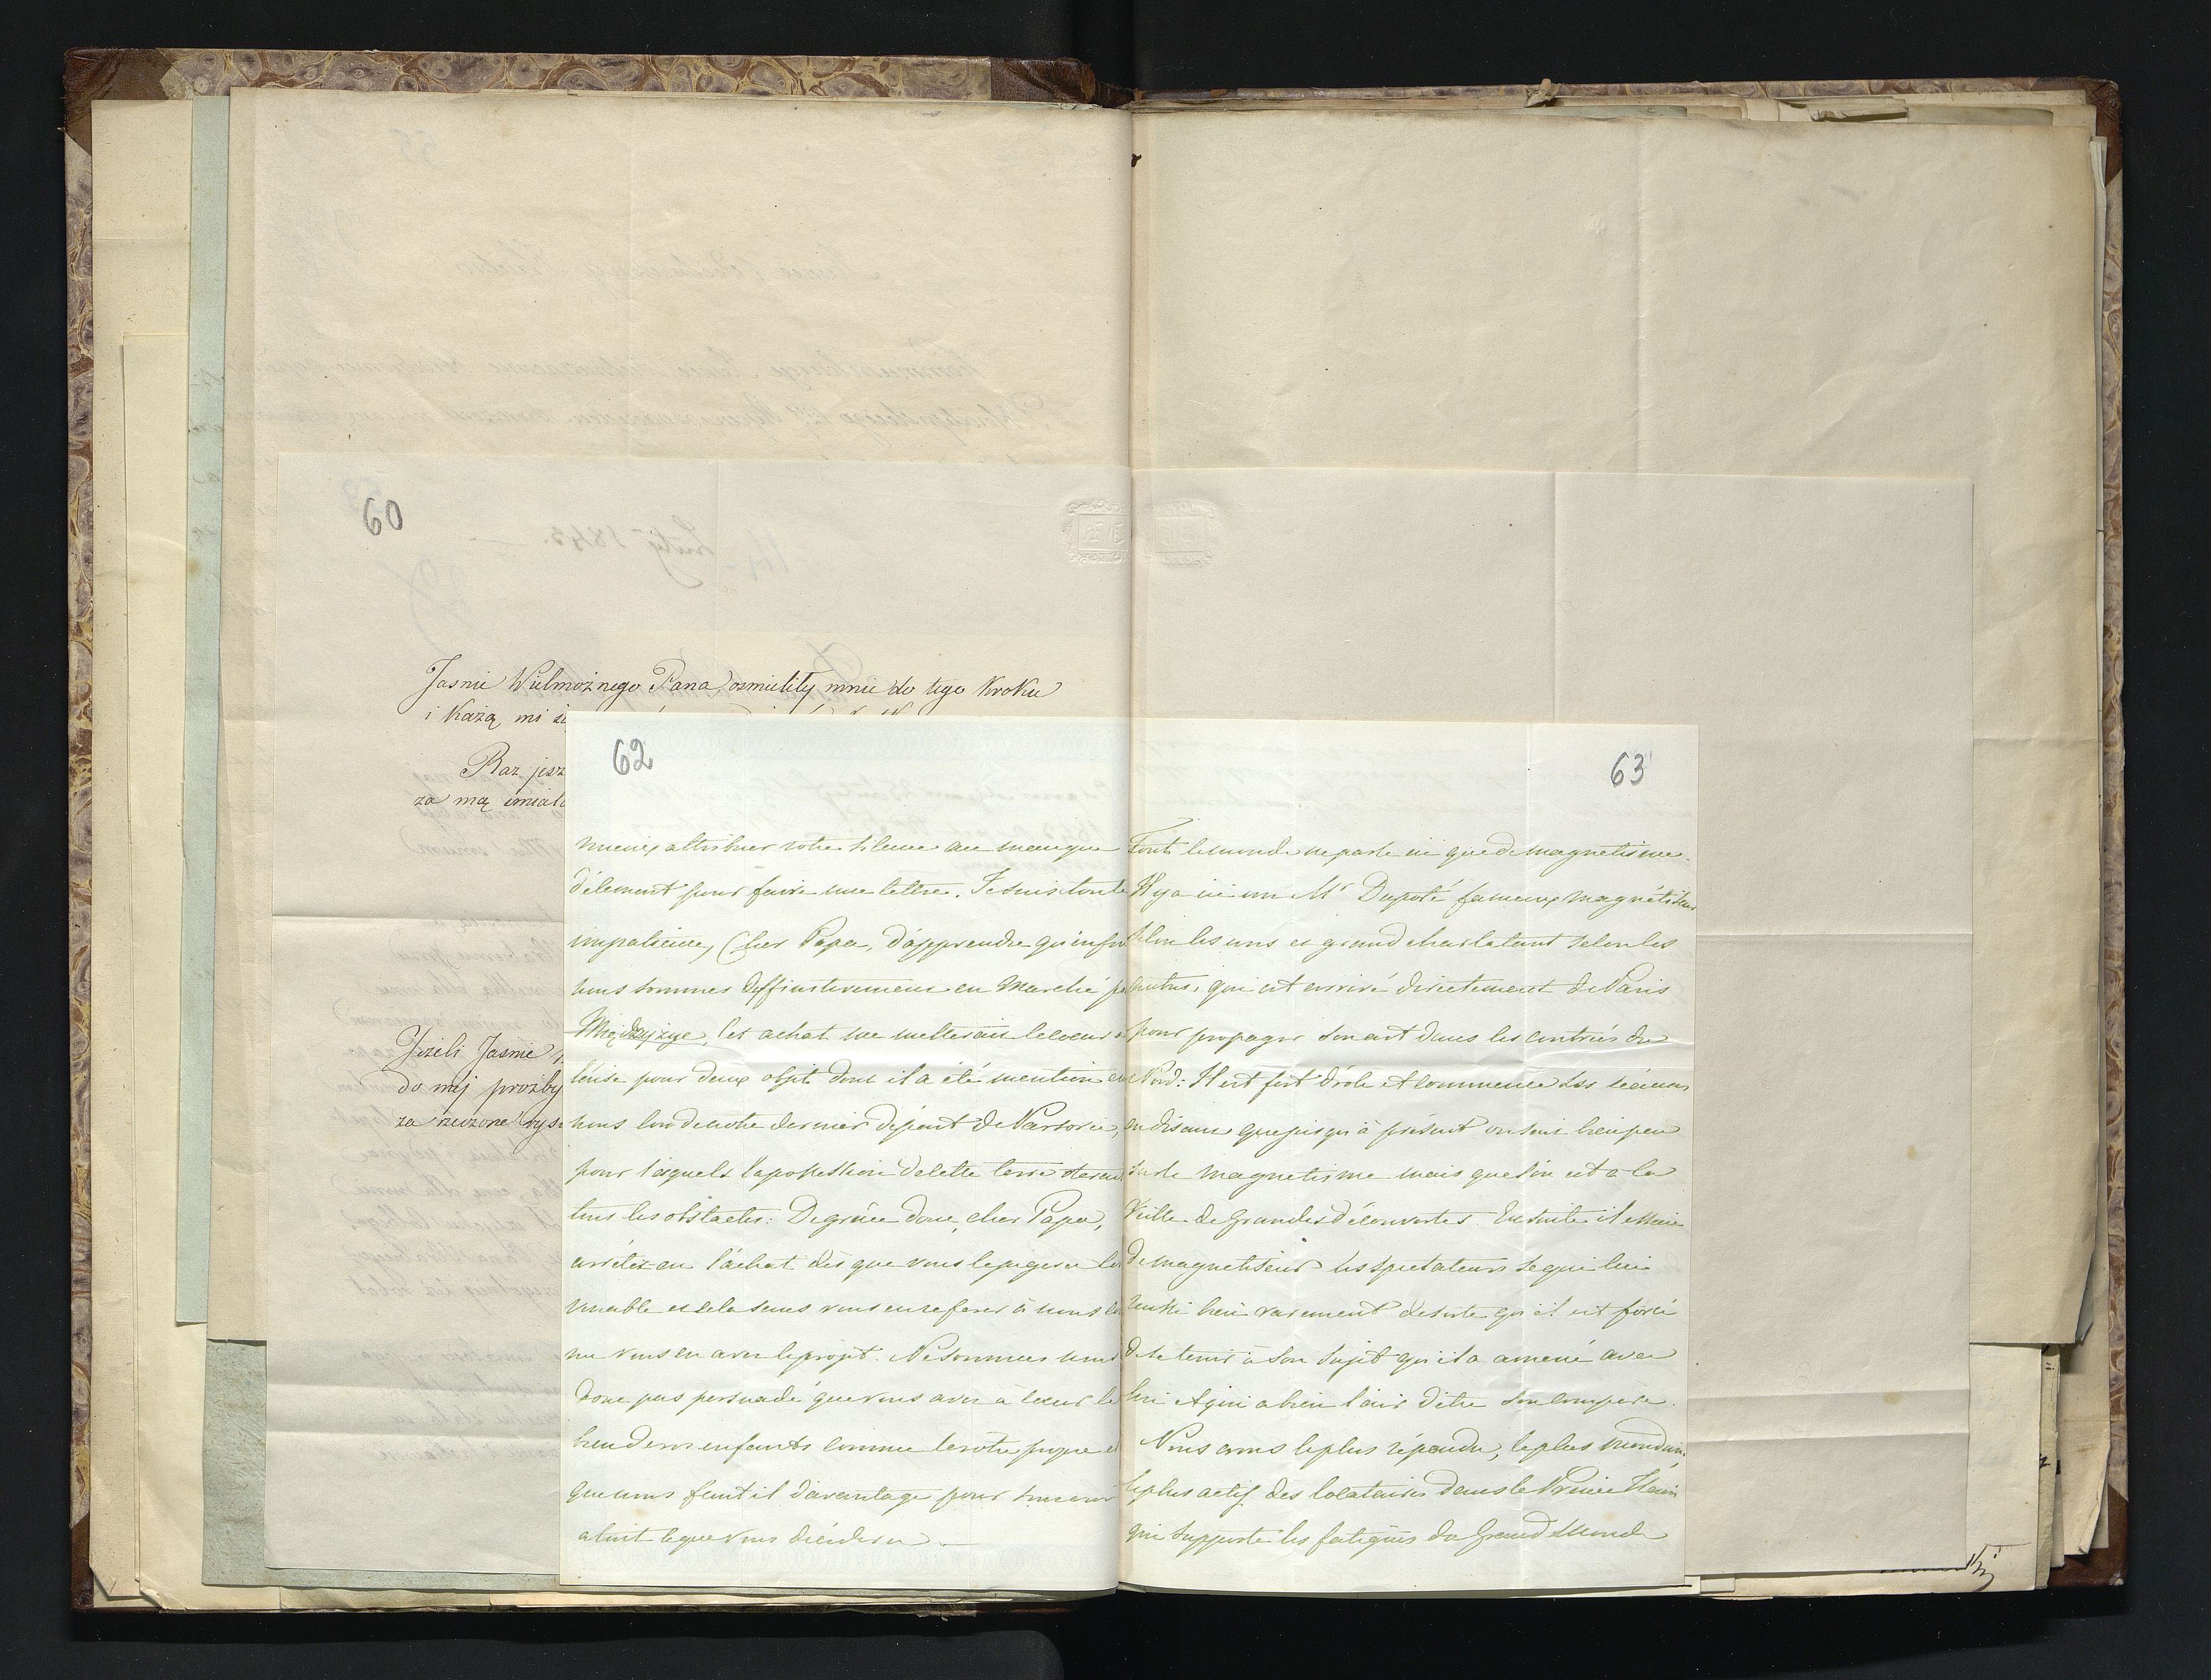 60
Jasnie Wielmożnego Pana, osmieliły mnie do tego Kroku
i Każą mi
Raz jesz
za mą smiało
Jeżeli Jasnie
do mej prozby
za rzeczone wys
62
mieux attribuer votre silence au manque
d'élement pour faire une lettre. Je suis toute
impatience, Cher Papa, d'apprendre qu'enfin
nous sommes deffinitivement en Marché p
Międzyżyc, cet achat me metterait le coeur
l'aise pour deux objets dont il a été mention en
nous lors de notre dernier départ de Varsovie,
pour lesquels la possession de cette terre
tous les obstacles: De grâce donc, cher Papa,
arrêtez en l'achat dès que vous le jugerez
venable et cela sans vous en referer à nous
me vous en avez le projet. Ne sommes nous
donc pas persuadé que vous avez à coeur le
bien de vos enfants comme le votre propre et
que nous faut il d'avantage pour souscrir
a tout ce que vous déciderez.
63
Tout le monde ne parle ici que de magnetisme.
Il y a ici un Mr Dupoté fameux magnétiseur
selon les uns et grand charlatant selon les
autres, qui est arrivé directement de Paris
pour propager son art dans les contrées du
Nord: Il est fort drôle et commence ses séances
en disant que jusqu'à présent on sait bien peu
sur le magnetisme mais que l'on est à la
Veille de Grandes découvertes. Ensuite il essaie
de magnetiser les spectateurs ce qui lui
reussi bien rarement desorte qu'il est forcé
de se tenir à son sujet qu'il a amené avec
lui et qui a bien l'air d'être son compère.
Nous avons le plus répandu, le plus mondain,
le plus actif des locataires dans le Prince
qui supporte les fatigues du Grand Monde